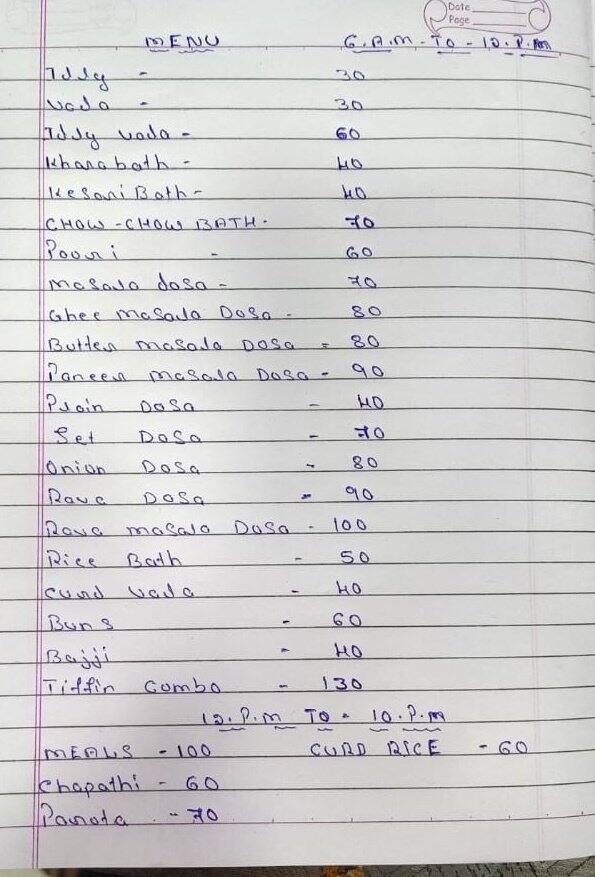 Date
Page
MENU 6.A.M - TO - 10.P.M
Iddly - 30
Vada - 30
Iddly Vada - 60
Kharabath - 40
Kesari Bath - 40
CHOW-CHOW BATH. 70
Poori - 60
Masala dosa - 70
Ghee Masala Dosa - 80
Butter Masala Dosa - 80
Paneer Masala Dosa - 90
Plain Dosa - 40
Set Dosa - 70
Onion Dosa - 80
Rava Dosa - 90
Rava Masala Dosa - 100
Rice Bath - 50
Curd Vada - 40
Buns - 60
Bajji - 40
Tiffin Combo - 130
12.P.M TO - 10.P.M
MEALS - 100 CURD RICE - 60
Chapathi - 60
Parota - 70